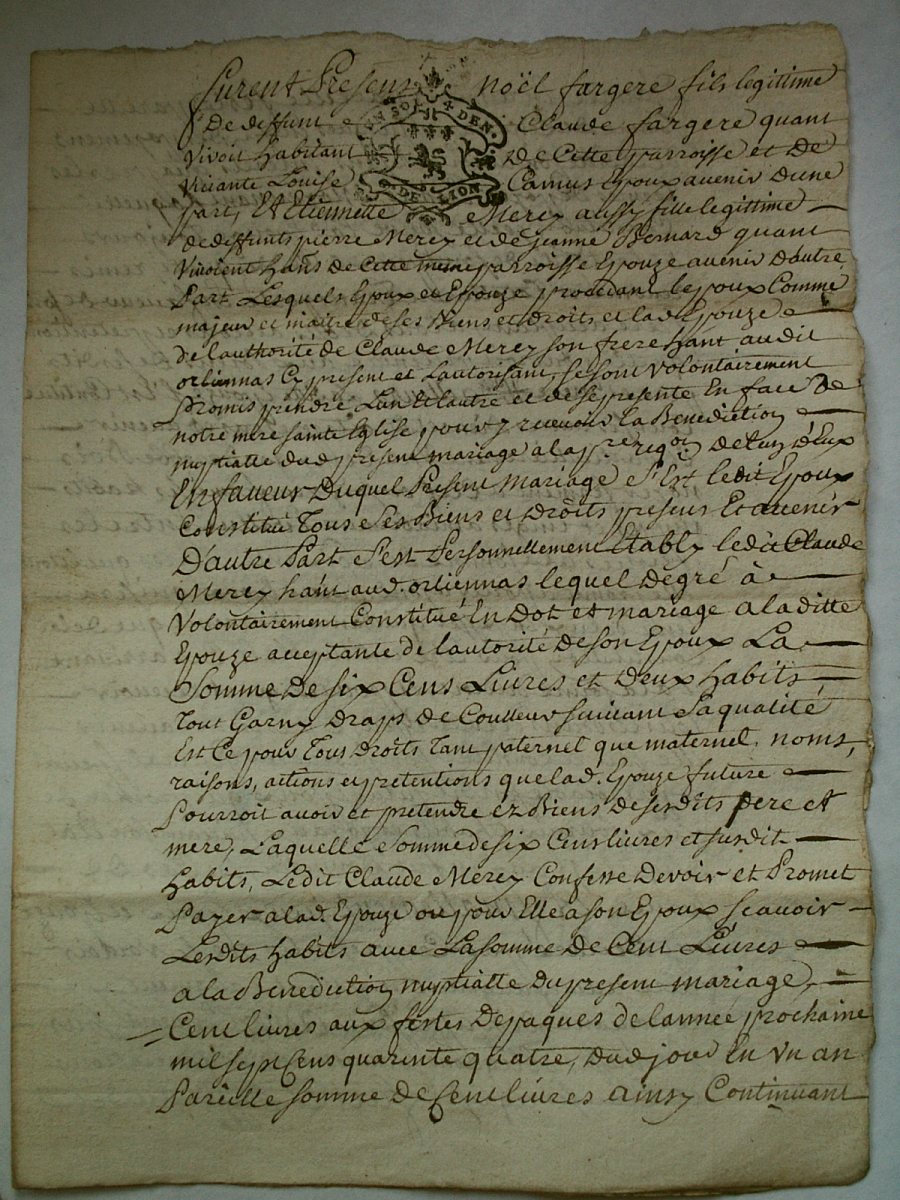 furent Presens Noël fargere fils legittime
De deffunt Claude fargere quant
Vivoit habitant de Cette parroisse et De
Vivante Louise Camus Epoux avenir d'une
part, Et Etiennette Merey aussy fille legittime
de deffunts pierre Merey et de jeanne Bernard quant
Vivoient hans de Cette meme parroisse Epouze avenir D'autre
Part, Lesquels Epoux et Epouze procedant le poux Comme
majeur et maitre de ses Biens et droits, et lad. Epouze
de l'authorité de Claude Merey son frere hant audit
orliennas Cy present et L'autorisant, se sont Volontairement
Promis prendre L'un Et L'autre et de se presenté En face De
notre mere sainte Eglise pour y recevoir La Benediction
nuptialle dud. present mariage a la pre. reqon. De L'un d'Eux
En faveur Duquel Present Mariage S'Est ledit Epoux
Constitué Tous Ses Biens et Droits presens Et avenir
D'autre Part S'est Personnellement Etably ledit Claude
Merey hant aud. orliennas lequel Degré à
Volontairement Constitué En Dot et mariage a laditte
Epouze acceptante de l'autorité de son Epoux La
Somme De six Cens Livres et Deux habits
Tout Garny Draps de Couleur suivant Sa qualité
Est Ce pour Tous Droits Tant paternel que maternel, noms,
raisons, actions et pretentions que lad. Epouze future
Pourroit avoir et pretendre ez Biens de sesdits pere et
mere, Laquelle Somme de six Cens livres et susdit
habits, Ledit Claude Merey Confesse Devoir et Promet
Payer a lad. Epouze ou pour Elle a son Epoux Scavoir
Lesdits habits avec La somme de Cent Livres
a la Benediction nuptialle Du present mariage,
Cent livres aux festes De paques de l'année prochaine
mil sept Cens quarente quatre, Dud. jour En Un an
Pareille somme de Cent livres ainsy Continuant
GEN. DE LION